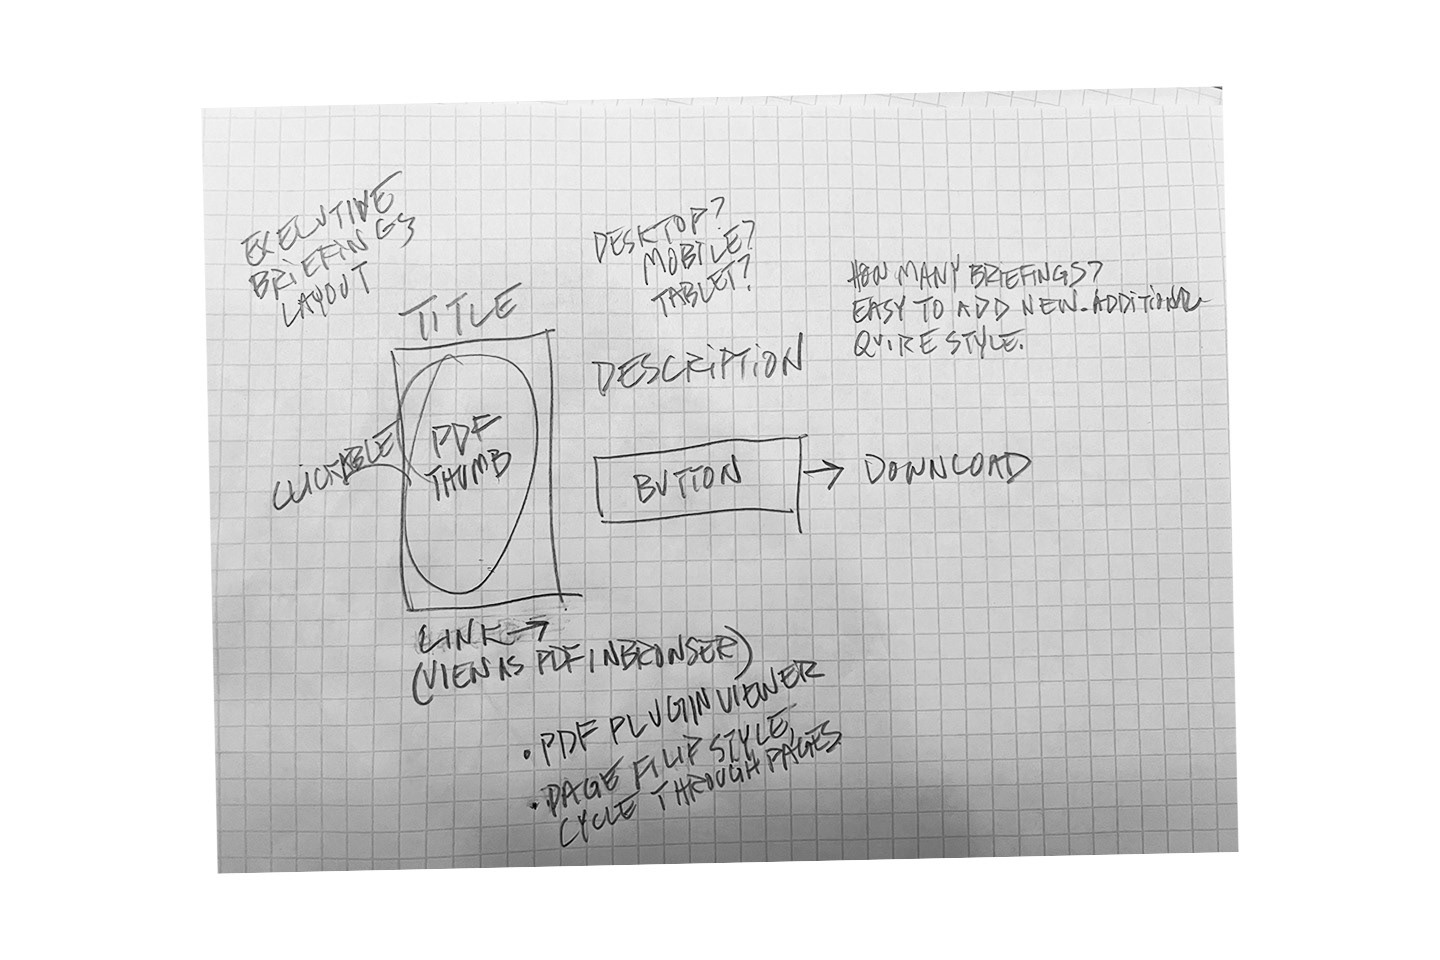 EXECUTIVE
BRIEFINGS
LAYOUT
DESKTOP?
MOBILE?
TABLET?
HOW MANY BRIEFINGS?
EASY TO ADD NEW. ADDITIONAL
STYLE.
TITLE
DESCRIPTION
CLICKABLE
PDF
THUMB
BUTTON → DOWNLOAD
LINK →
(VIEW AS PDF IN BROWSER)
• PDF PLUGIN VIEWER
• PAGE FLIP STYLE,
CYCLE THROUGH PAGES